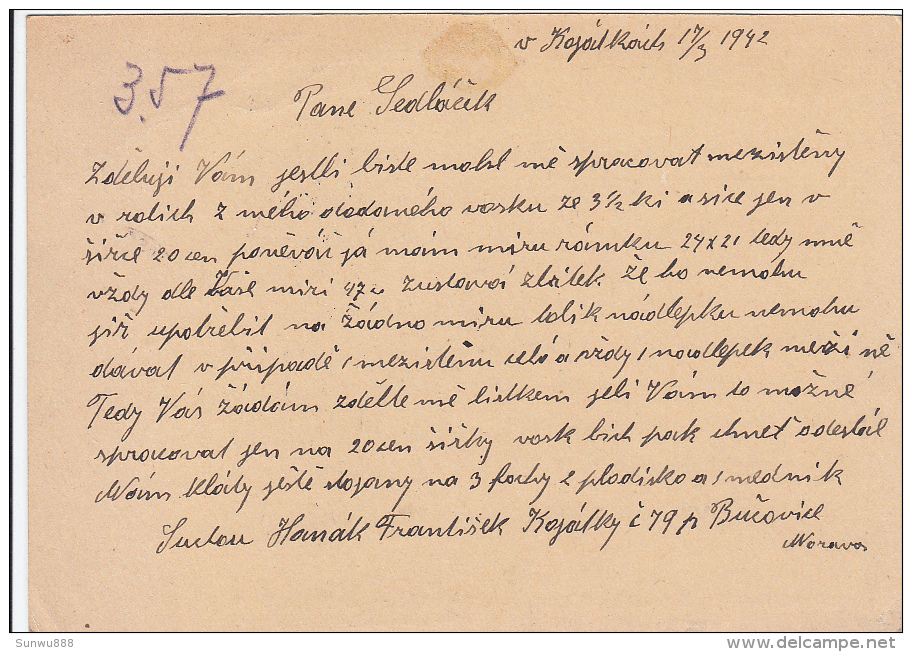 v Kojátkách 17/3 1942
3.57
Pane Sedláček
Zděluji Vám jestli biste mohl mě spracovat mezistěny
v rolich z mého dodaného vosku ze 3 1/2 ki a sice jen v
šířce 20 cen poněvač já mám miru rámku 24x21 tedy mně
vždy dle Vaše miri zustavá zbitek. že ho nemohu
již upotřebit na žádno miru tolik nádlepku nemohu
dávat v připadě / mezistěnu celó a vždy / nadlepek meži ně
Tedy Vás žádám zdělte mě listkem jeli Vám to možné
spracovat jen na 20 cen šiřky vosk bich pak ihneť odeslál
Mám kláty ještě stojany na 3 fochy 2 plodisko a / mednik
Hanák František Kojátky č 79 p Bučovice
Morava
Sunwu888
www.delcampe.net